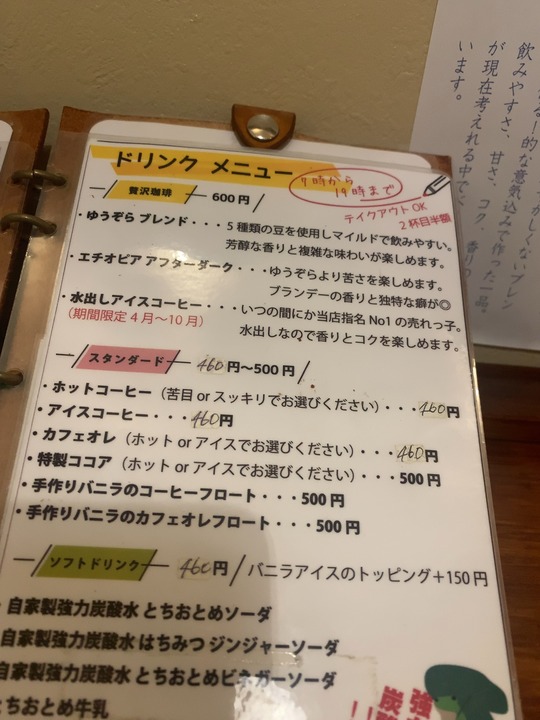 ドリンク メニュー
7時から
19時まで
テイクアウトOK
2杯目半額
贅沢珈琲 600円
・ゆうぞら ブレンド・・・5種類の豆を使用しマイルドで飲みやすい。
芳醇な香りと複雑な味わいが楽しめます。
・エチオピア アフターダーク・・・ゆうぞらより苦さを楽しめます。
ブランデーの香りと独特な癖が◎
・水出しアイスコーヒー・・・いつの間にか当店指名 No1 の売れっ子。
(期間限定 4月〜10月)
水出しなので香りとコクを楽しめます。
スタンダード 460円〜500円
・ホットコーヒー(苦目 or スッキリでお選びください)・・・460円
・アイスコーヒー・・・460円
・カフェオレ(ホット or アイスでお選びください)・・・460円
・特製ココア(ホット or アイスでお選びください)・・・500円
・手作りバニラのコーヒーフロート・・・500円
・手作りバニラのカフェオレフロート・・・500円
ソフトドリンク 460円/バニラアイスのトッピング+150円
・自家製強力炭酸水 とちおとめソーダ
自家製強力炭酸水 はちみつ ジンジャーソーダ
自家製強力炭酸水 とちおとめビネガーソーダ
とちおとめ牛乳
強
炭酸
!!
かしくないブレン
る!的な意気込みで作った一品。
飲みやすさ、甘さ、コク、香り
が現在考えれる中で
います。